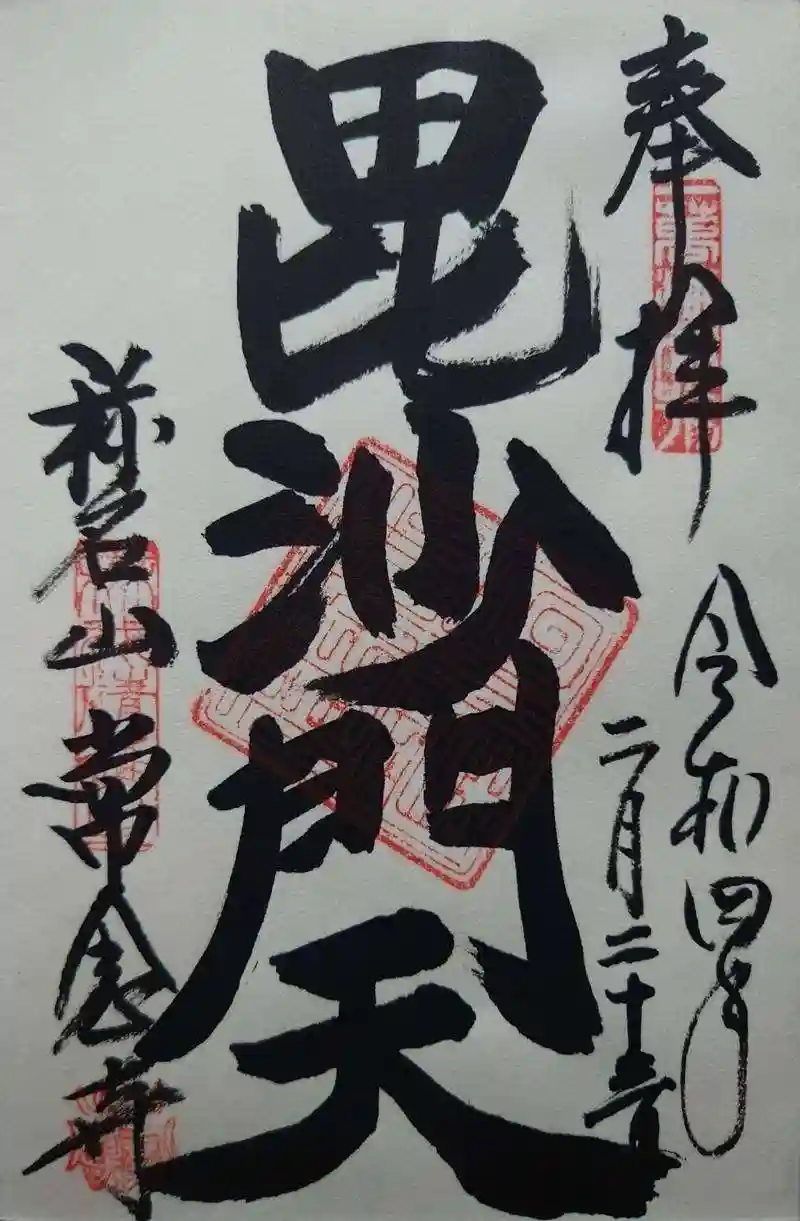 奉拝
令和四年
二月二十
毘沙門天
稱名山 常念寺